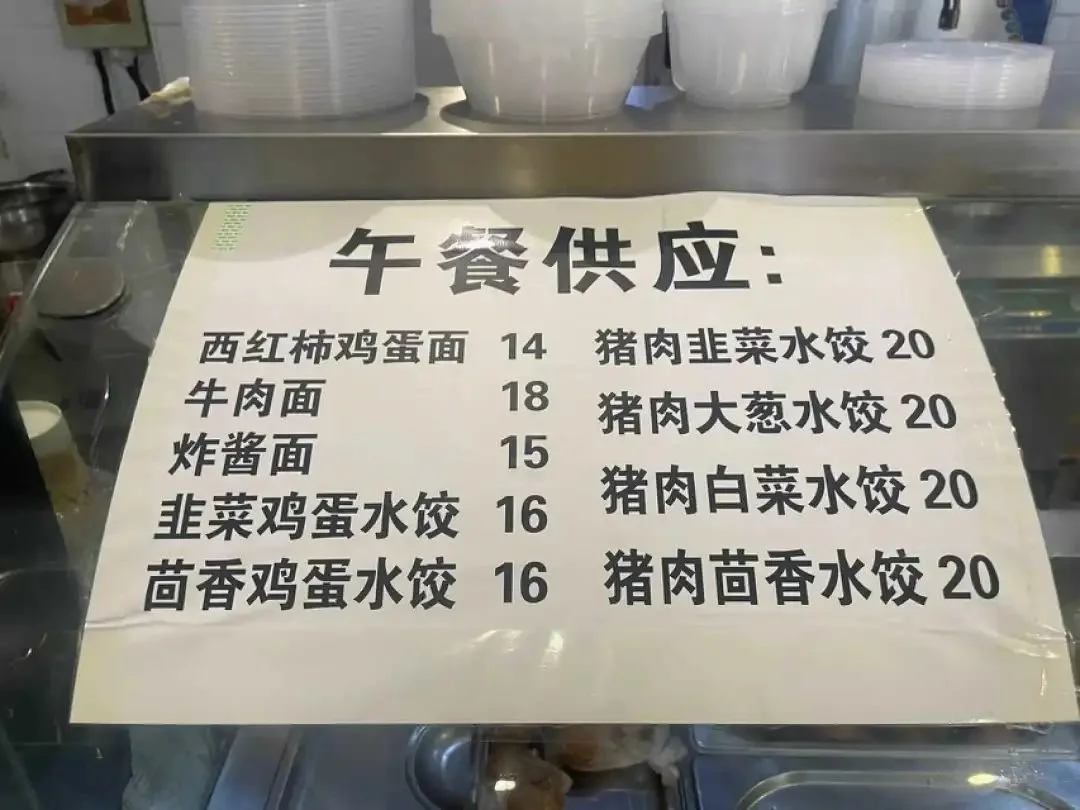 午餐供应:
西红柿鸡蛋面 14
牛肉面 18
炸酱面 15
韭菜鸡蛋水饺 16
茴香鸡蛋水饺 16
猪肉韭菜水饺 20
猪肉大葱水饺 20
猪肉白菜水饺 20
猪肉茴香水饺 20